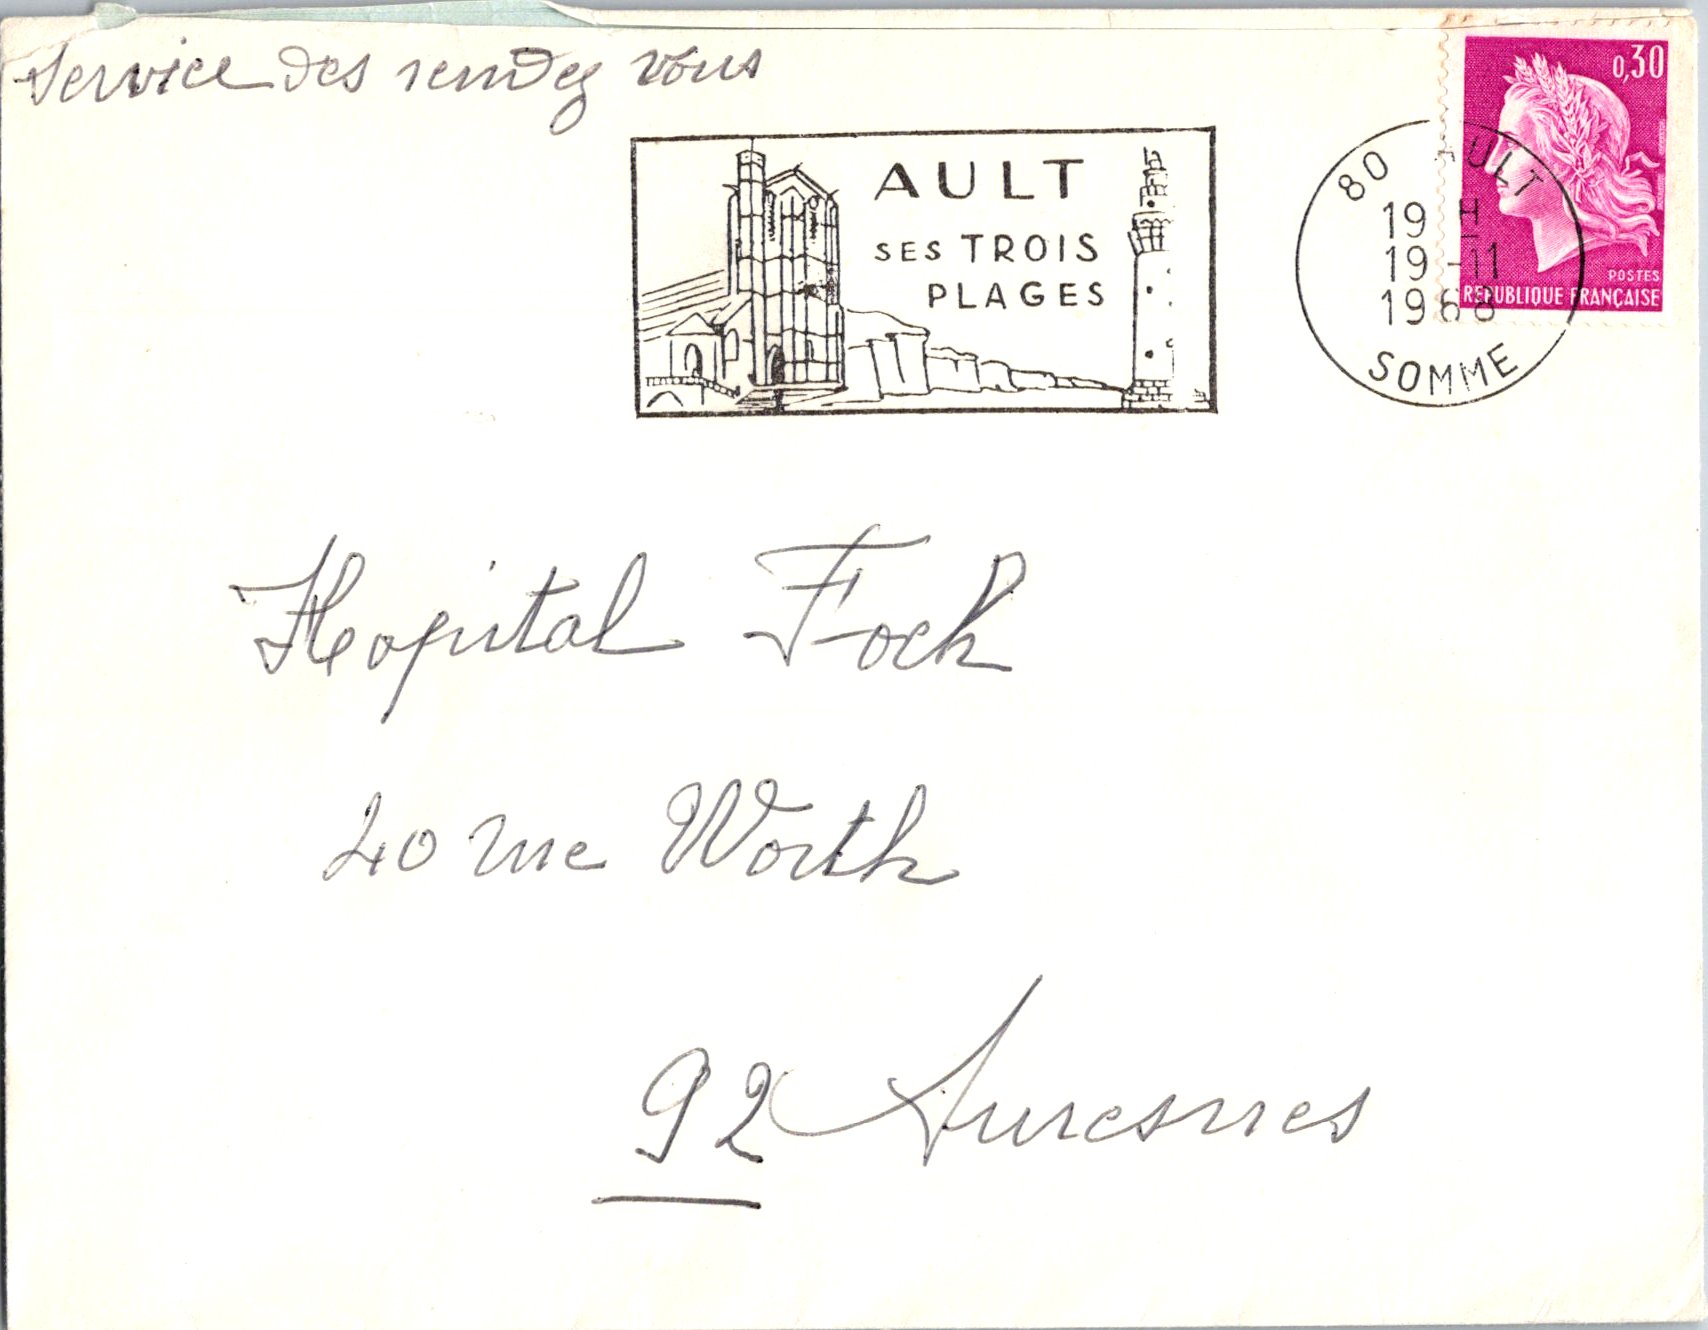 Service des rendez vous
0,30
POSTES
REPUBLIQUE FRANÇAISE
AULT
SES TROIS
PLAGES
80 AULT
19 H
19 -11
1968
SOMME
Hopital Foch
40 rue Worth
92 Suresnes